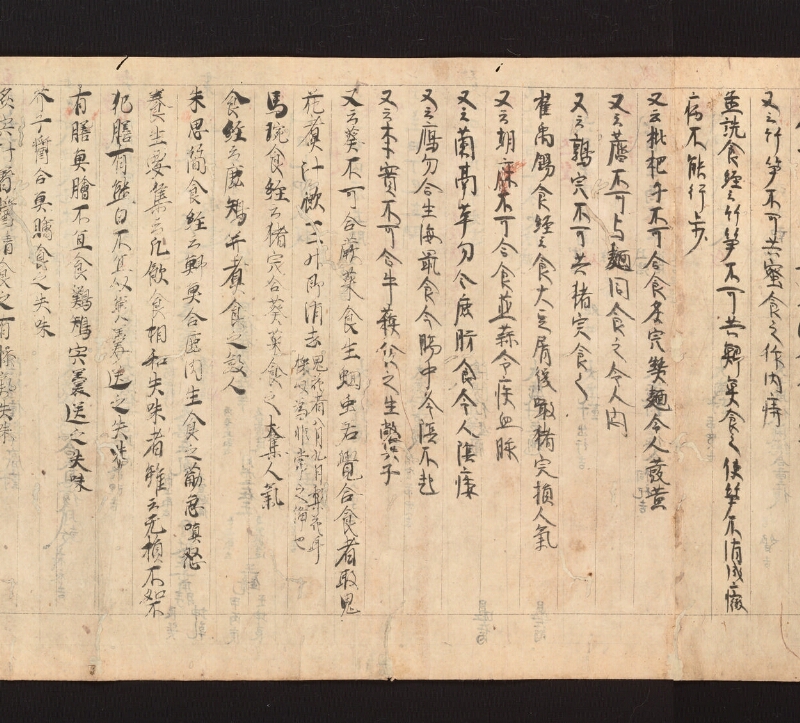 又云竹笋不可共蜜食之作内痔
孟詵食經云竹笋不可共鯽魚食之使笋不消成癥
病不能行步
又云枇杷子不可合食炙宍熱麺令人發黄
又云䕬不可与麺同食之令人悶
又云鶉宍不可共猪宍食之
崔禹錫食經云食大豆屑後噉猪宍損人氣
又云胡麻不可合食並蒜令疾血脉
又云蘭鬲草勿合鹿肪食令人陰痿
又云鴈勿合生海鼠食令腸中冷陰不起
又云李實不可合牛蘇
又云葵不可合蕨菜食生蛔虫若覺合食者取鬼
花煮汁飲一二升即消去
鬼花者八月九月
馬琬食經云猪宍合葵菜食之奪人氣
食經云鹿雉并煮食之殺人
朱思簡食經云鯽魚合鹿肉生食之筋急嗔怒
養生要集云凡飲食相和失味者雖云无損不如不
犯膳有熊白不宜以魚羹送之失味
有膳魚膾不宜食鷄雉宍羹送之失味
芥子醬合魚膾食之失味